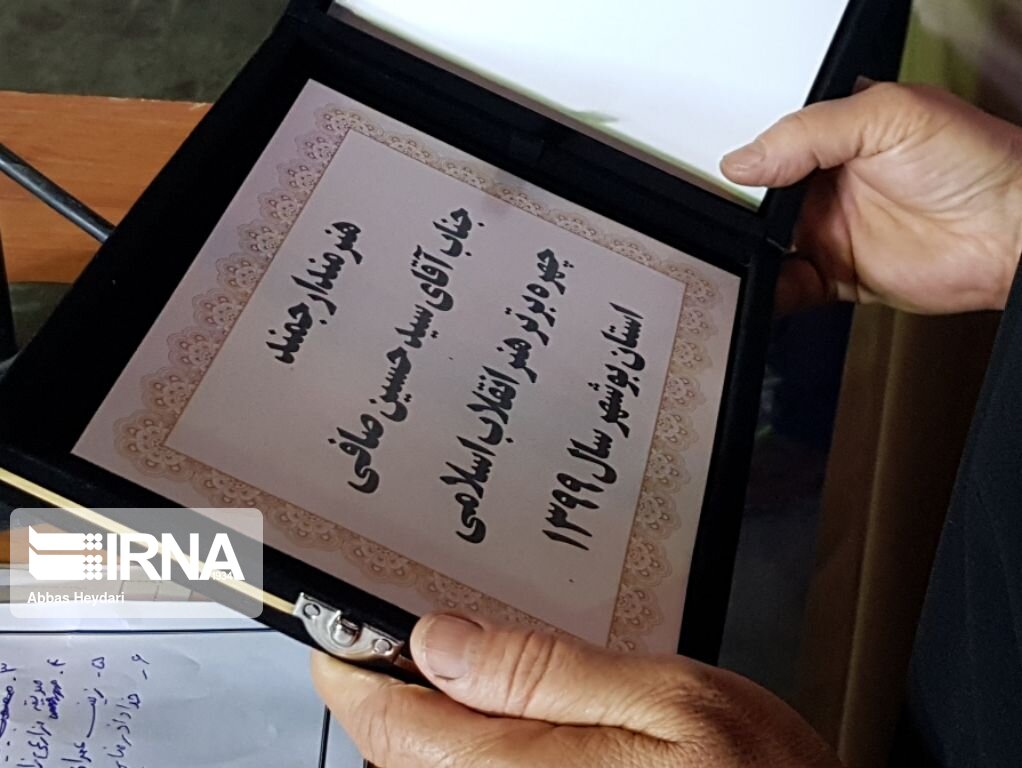 هنرمند ارجمند
جناب آقای سید حسین صافی
چهره برتر هنر انقلاب اسلامی
استان بوشهر سال ۱۳۹۹
IRNA
1934
Abbas Heydari